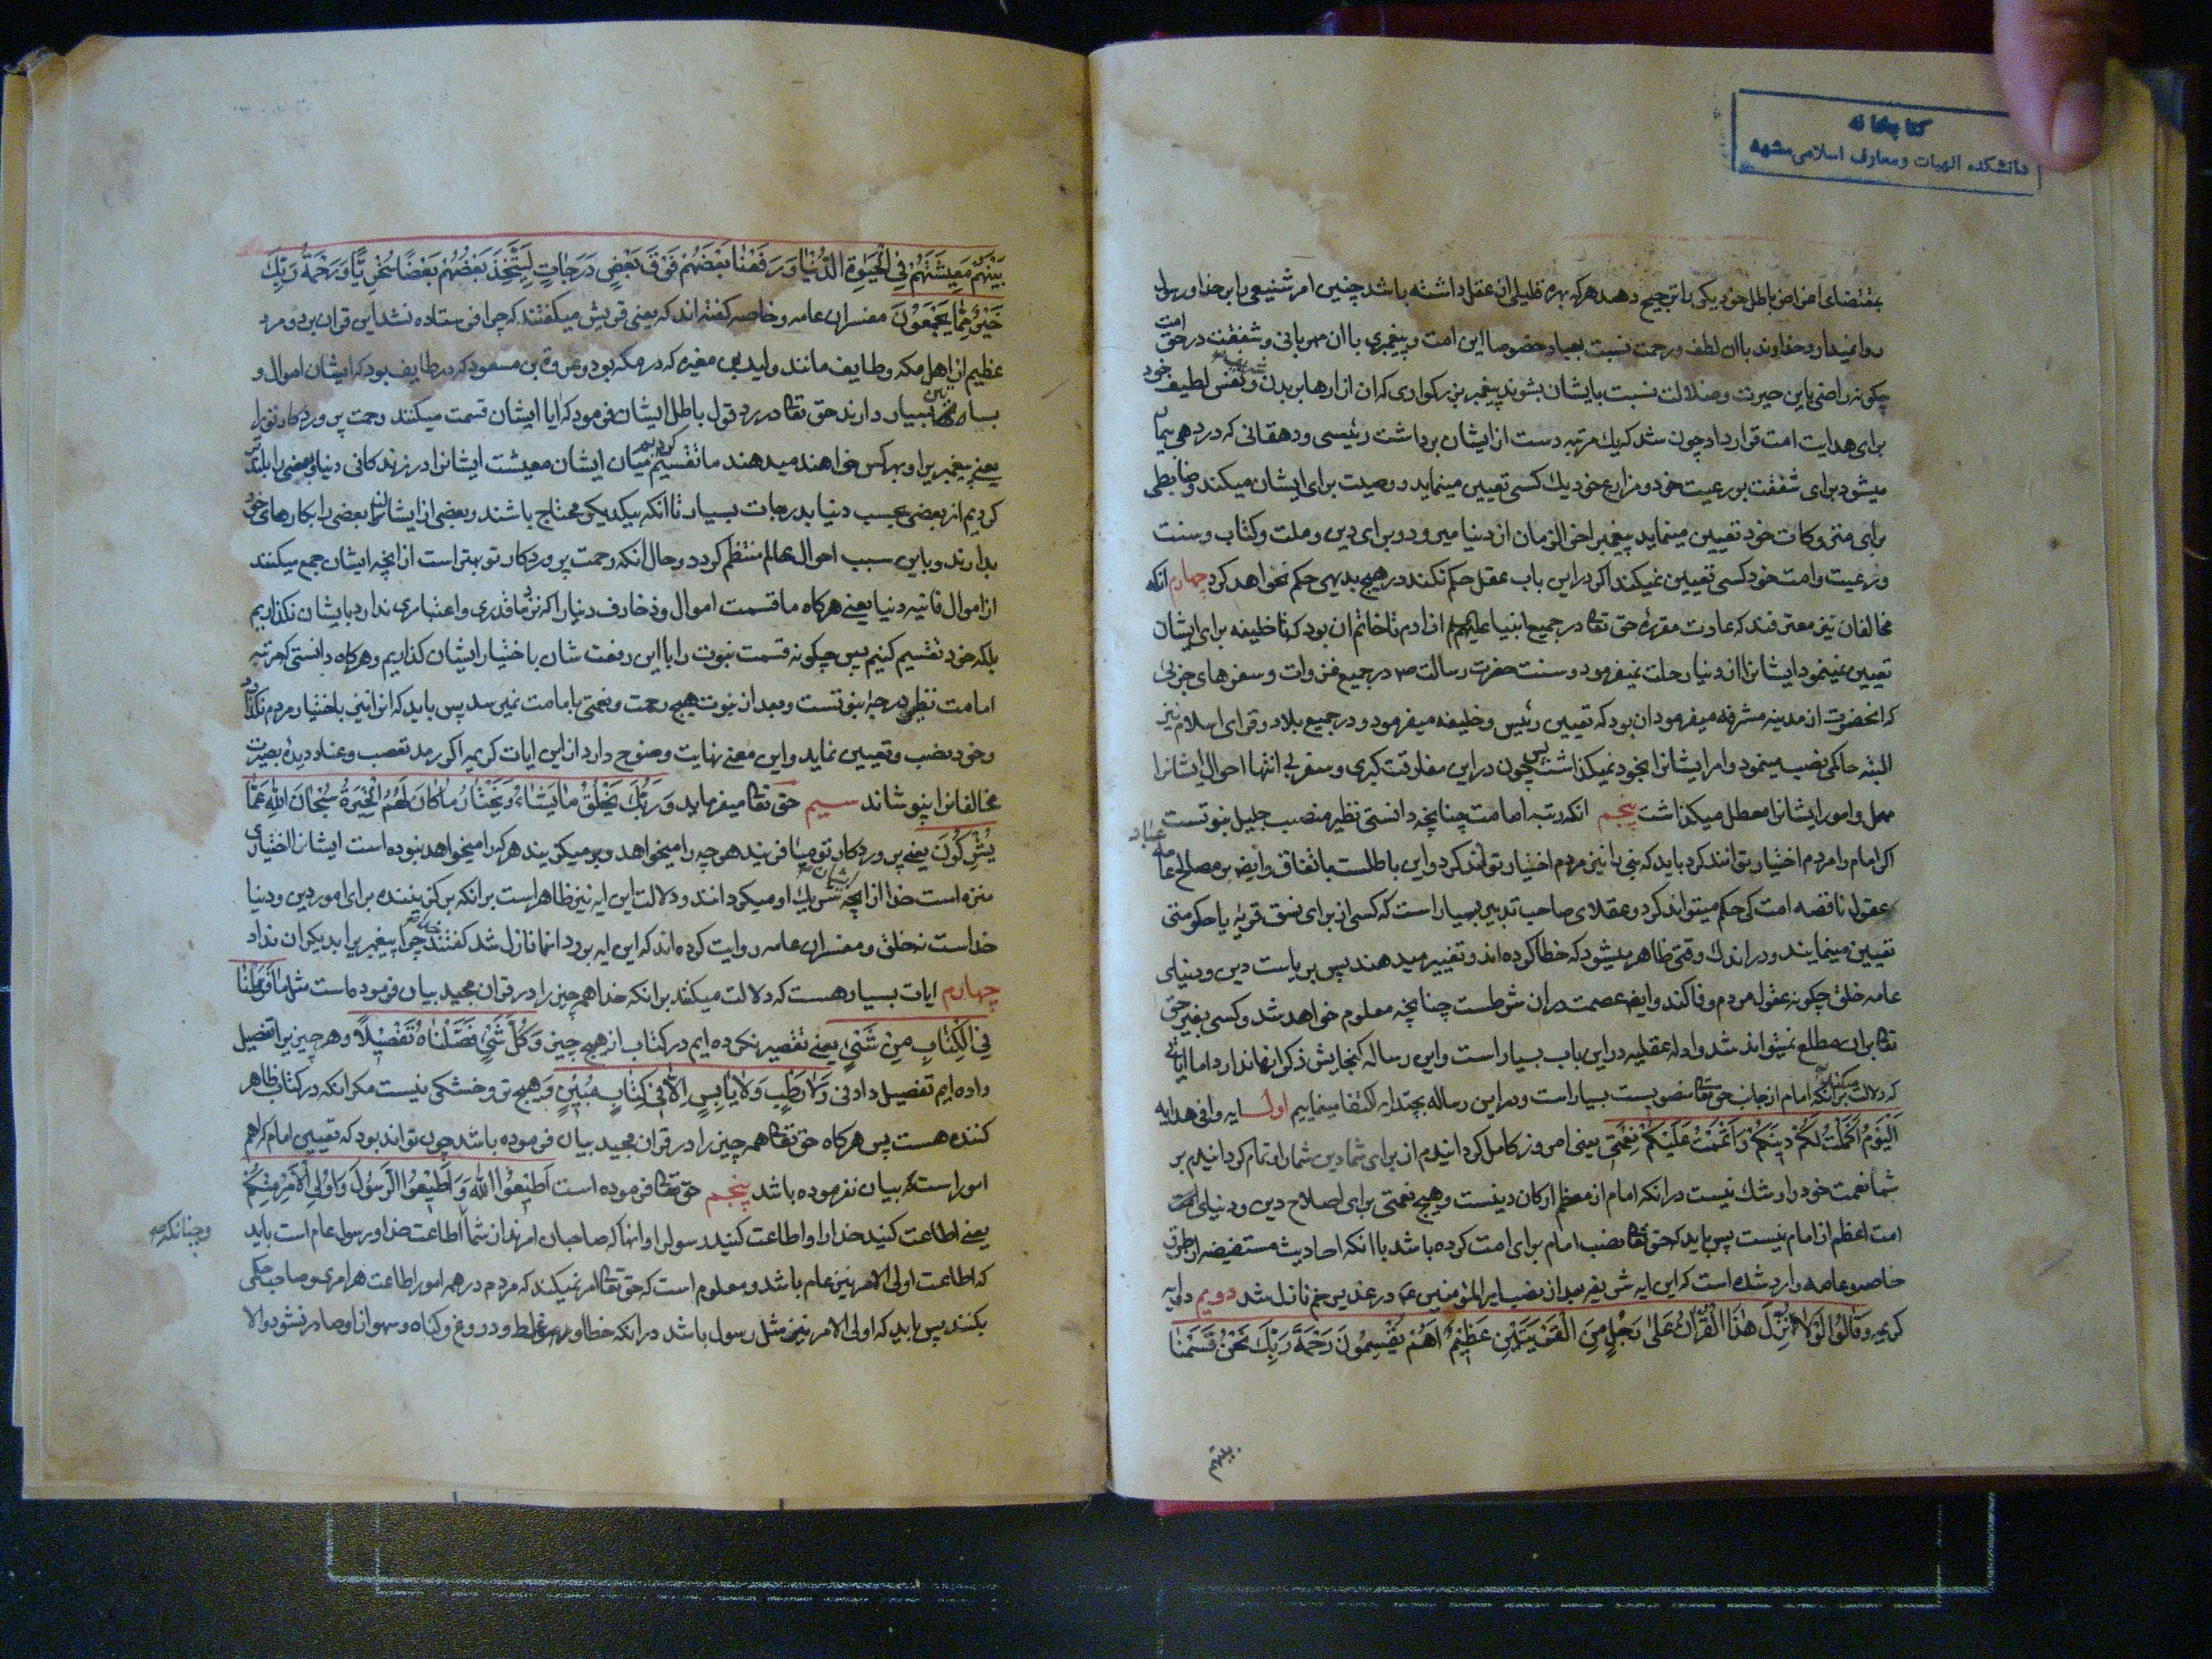 کتابخانه
دانشکده الهیات ومعارف اسلامی مشهد
بمقتضای اغراض باطل خود یکی را ترجیح دهد هر که بهره قلیلی از عقل داشته باشد چنین امر شنیعی را بر خدا و رسول
روا نمیدارد خداوند باان لطف و رحمت نسبت بعباد خصوصا این امت و پیغمبری باان مهربانی و شفقت در حق امت
چکونه راضی باین حیرت و ضلالت نسبت بایشان بشوند پیغمبر بزرکواری که ان ازارها بر بدن و نفس لطیف خود
برای هدایت امت قرار داد چون شد که یک مرتبه دست از ایشان برداشت رئیسی و دهقانی که در دهی بیمار
میشود برای شفقت بر رعیت خود و مزارع خود یک کسی تعیین مینماید و وصیت برای ایشان میکند و ضابطی
برای متروکات خود تعیین مینماید پیغمبر اخر الزمان از دنیا میرود و برای دین و ملت و کتاب و سنت
و رعیت و امت خود کسی تعیین نمیکند اکر در این باب عقل حکم نکند در هیچ بدیهی حکم نخواهد کرد چهارم انکه
مخالفان نیز معترفند که عادت مقرره حق تعا در جمیع انبیا علیهم از ادم تا خاتم ان بود که تا خلیفه برای ایشان
تعیین نمینمود ایشانرا از دنیا رحلت نمیفرمود و سنت حضرت رسالت ص در جمیع غزوات و سفرهای جزئی
که انحضرت از مدینه مشرفه میفرمود ان بود که تعیین رئیس و خلیفه میفرمود و در جمیع بلاد و قرای اسلام نیز
البته حاکمی نصب مینمود و امر ایشانرا بخود نمیکذاشت پس چون در این مفارقت کبری و سفر بی انتها احوال ایشانرا
مهمل و امور ایشانرا معطل میکذاشت پنجم انکه رتبه امامت چنانچه دانستی نظیر منصب جلیل نبوتست
اکر امام را مردم اختیار توانند کرد باید که نبی را نیز مردم اختیار توانند کرد و این باطلست باتفاق و ایض بر مصالح عامه عباد
عقول ناقصه امت کی حکم میتواند کرد و عقلای صاحب تدبیر بسیار است که کسی از برای نسق قریه یا حکومتی
تعیین مینمایند و در اندک وقتی ظاهر میشود که خطا کرده اند و تغییر میدهند پس بر ریاست دین و دنیای
عامه خلق چکونه عقول مردم وفا کند و ایض عصمت دران شرطست چنانچه معلوم خواهد شد و کسی بغیر حق
تعا بران مطلع نمیتواند شد و ادله عقلیه در این باب بسیار است و این رساله کنجایش ذکر انها ندارد اما ایاتی
که دلالت میکند بر انکه امام از جانب حق تعا منصوبست بسیار است و در این رساله بچند ایه اکتفا مینماییم اول ایه وافی هدایه
اَلْیَوْمَ اَکْمَلْتُ لَکُمْ دینَکُمْ وَاَتْمَمْتُ عَلَیْکُمْ نِعْمَتی یعنی امروز کامل کردانیدم از برای شما دین شمارا و تمام کردانیدم بر
شما نعمت خود را و شک نیست در انکه امام از معظم ارکان دینست و هیچ نعمتی برای اصلاح دین و دنیای
امت اعظم از امام نیست پس باید که حق تعا نصب امام برای امت کرده باشد با انکه احادیث مستفیضه از طرق
خاصه و عامه وارد شده است که این ایه شریفه بعد از نصب امیرالمؤمنین ع در غدیر خم نازل شد دویم ایه
کریمه وَقالُوا لَوْلا نُزِّلَ هٰذَا الْقُرْانُ عَلیٰ رَجُلٍ مِنَ الْقَرْیَتَیْنِ عَظیمٍ اَهُمْ یَقْسِمُونَ رَحْمَةَ رَبِّکَ نَحْنُ قَسَمْنا
بَیْنَهُمْ مَعیشَتَهُمْ فِی الْحَیٰوةِ الدُّنْیا وَرَفَعْنا بَعْضَهُمْ فَوْقَ بَعْضٍ دَرَجاتٍ لِیَتَّخِذَ بَعْضُهُمْ بَعْضًا سُخْرِیًّا وَرَحْمَةُ رَبِّکَ
خَیْرٌ مِمّا یَجْمَعُونَ مفسران عامه و خاصه کفته اند که یعنی قریش میکفتند که چرا فرستاده نشد این قران بر دو مرد
عظیم از اهل مکه و طایف مانند ولید بن مغیره که در مکه بود و عروة بن مسعود که در طایف بود که ایشان اموال و
بسیار دارند حق تعا در رد قول باطل ایشان فرمود که ایا ایشان قسمت میکنند رحمت پروردکار تورا
یعنی پیغمبری را و بهر کس خواهند میدهند ما تقسیم کردیم میان ایشان معیشت ایشانرا در زندکانی دنیا و بعضی را بلند تر
کردیم از بعضی بحسب دنیا بدرجات بسیار تا انکه بیکدیکر محتاج باشند و بعضی از ایشان بعضی را بکارهای خود
بدارند و باین سبب احوال عالم منتظم کردد و حال انکه رحمت پروردکار تو بهتر است از انچه ایشان جمع میکنند
از اموال فانیه دنیا یعنی هرکاه ما قسمت اموال و زخارف دنیا را که نزد ما قدری و اعتباری ندارد بایشان نکذاریم
بلکه خود تقسیم کنیم پس چکونه قسمت نبوت را با این رفعت شان باختیار ایشان کذاریم و هرکاه دانستی که مرتبه
امامت نظیر درجه نبوتست و بعد از نبوت هیچ رحمت و نعمتی بامامت نمیرسد پس باید که انرا نیز باختیار مردم نکذارد
و خود نصب و تعیین نماید و این معنی نهایت وضوح دارد از این ایات کریمه اکر رمد تعصب و عناد دیدهٔ بصیرت
مخالفانرا نپوشاند سیم حق تعا میفرماید وَرَبُّکَ یَخْلُقُ ما یَشاءُ وَیَخْتارُ ما کانَ لَهُمُ الْخِیَرَةُ سُبْحانَ اللهِ عَمّا
یُشْرِکُونَ یعنی پروردکار تو میافریند هرچه را میخواهد و برمیکزیند هرکه را میخواهد نبوده است ایشانرا اختیاری
منزه است خدا از انچه ایشان شریک او میکردانند و دلالت این ایه نیز ظاهر است بر انکه برکزیننده برای امور دین و دنیا
خداست نه خلق و مفسران عامه روایت کرده اند که این ایه بر رد انها نازل شد کفتند چرا پیغمبری را بدیکران نداد
چهارم ایات بسیار هست که دلالت میکند بر انکه خدا همه چیز را در قران مجید بیان فرموده است مثل ما فَرَّطْنا
فِی الْکِتابِ مِنْ شَیْءٍ یعنی تقصیر نکرده ایم در کتاب از هیچ چیز وَکُلَّ شَیْءٍ فَصَّلْناهُ تَفْصیلاً و هر چیزیرا تفصیل
داده ایم تفصیل دادنی وَلا رَطْبٍ وَلا یابِسٍ اِلّا فی کِتابٍ مُبینٍ و هیچ تر و خشکی نیست مکر انکه در کتاب ظاهر
کننده هست پس هرکاه حق تعا همه چیز را در قران مجید بیان فرموده باشد چون تواند بود که تعیین امام که اهم
امور است بیان نفرموده باشد پنجم حق تعا فرموده است اَطیعُوا اللهَ وَاَطیعُوا الرَّسُولَ وَاُولِی الْاَمْرِ مِنْکُمْ
یعنی اطاعت کنید خدا را و اطاعت کنید رسول را و انها که صاحبان امرند از شما اطاعت خدا و رسول عام است باید
وچنانکه
که اطاعت اولی الامر نیز عام باشد و معلوم است که حق تعا امر نمیکند که مردم در همه امور اطاعت هر امری و صاحب حکمی
بکنند پس باید که اولی الامر نیز مثل رسول باشد در انکه خطا و غلط و دروغ و کناه و سهو از او صادر نشود والا